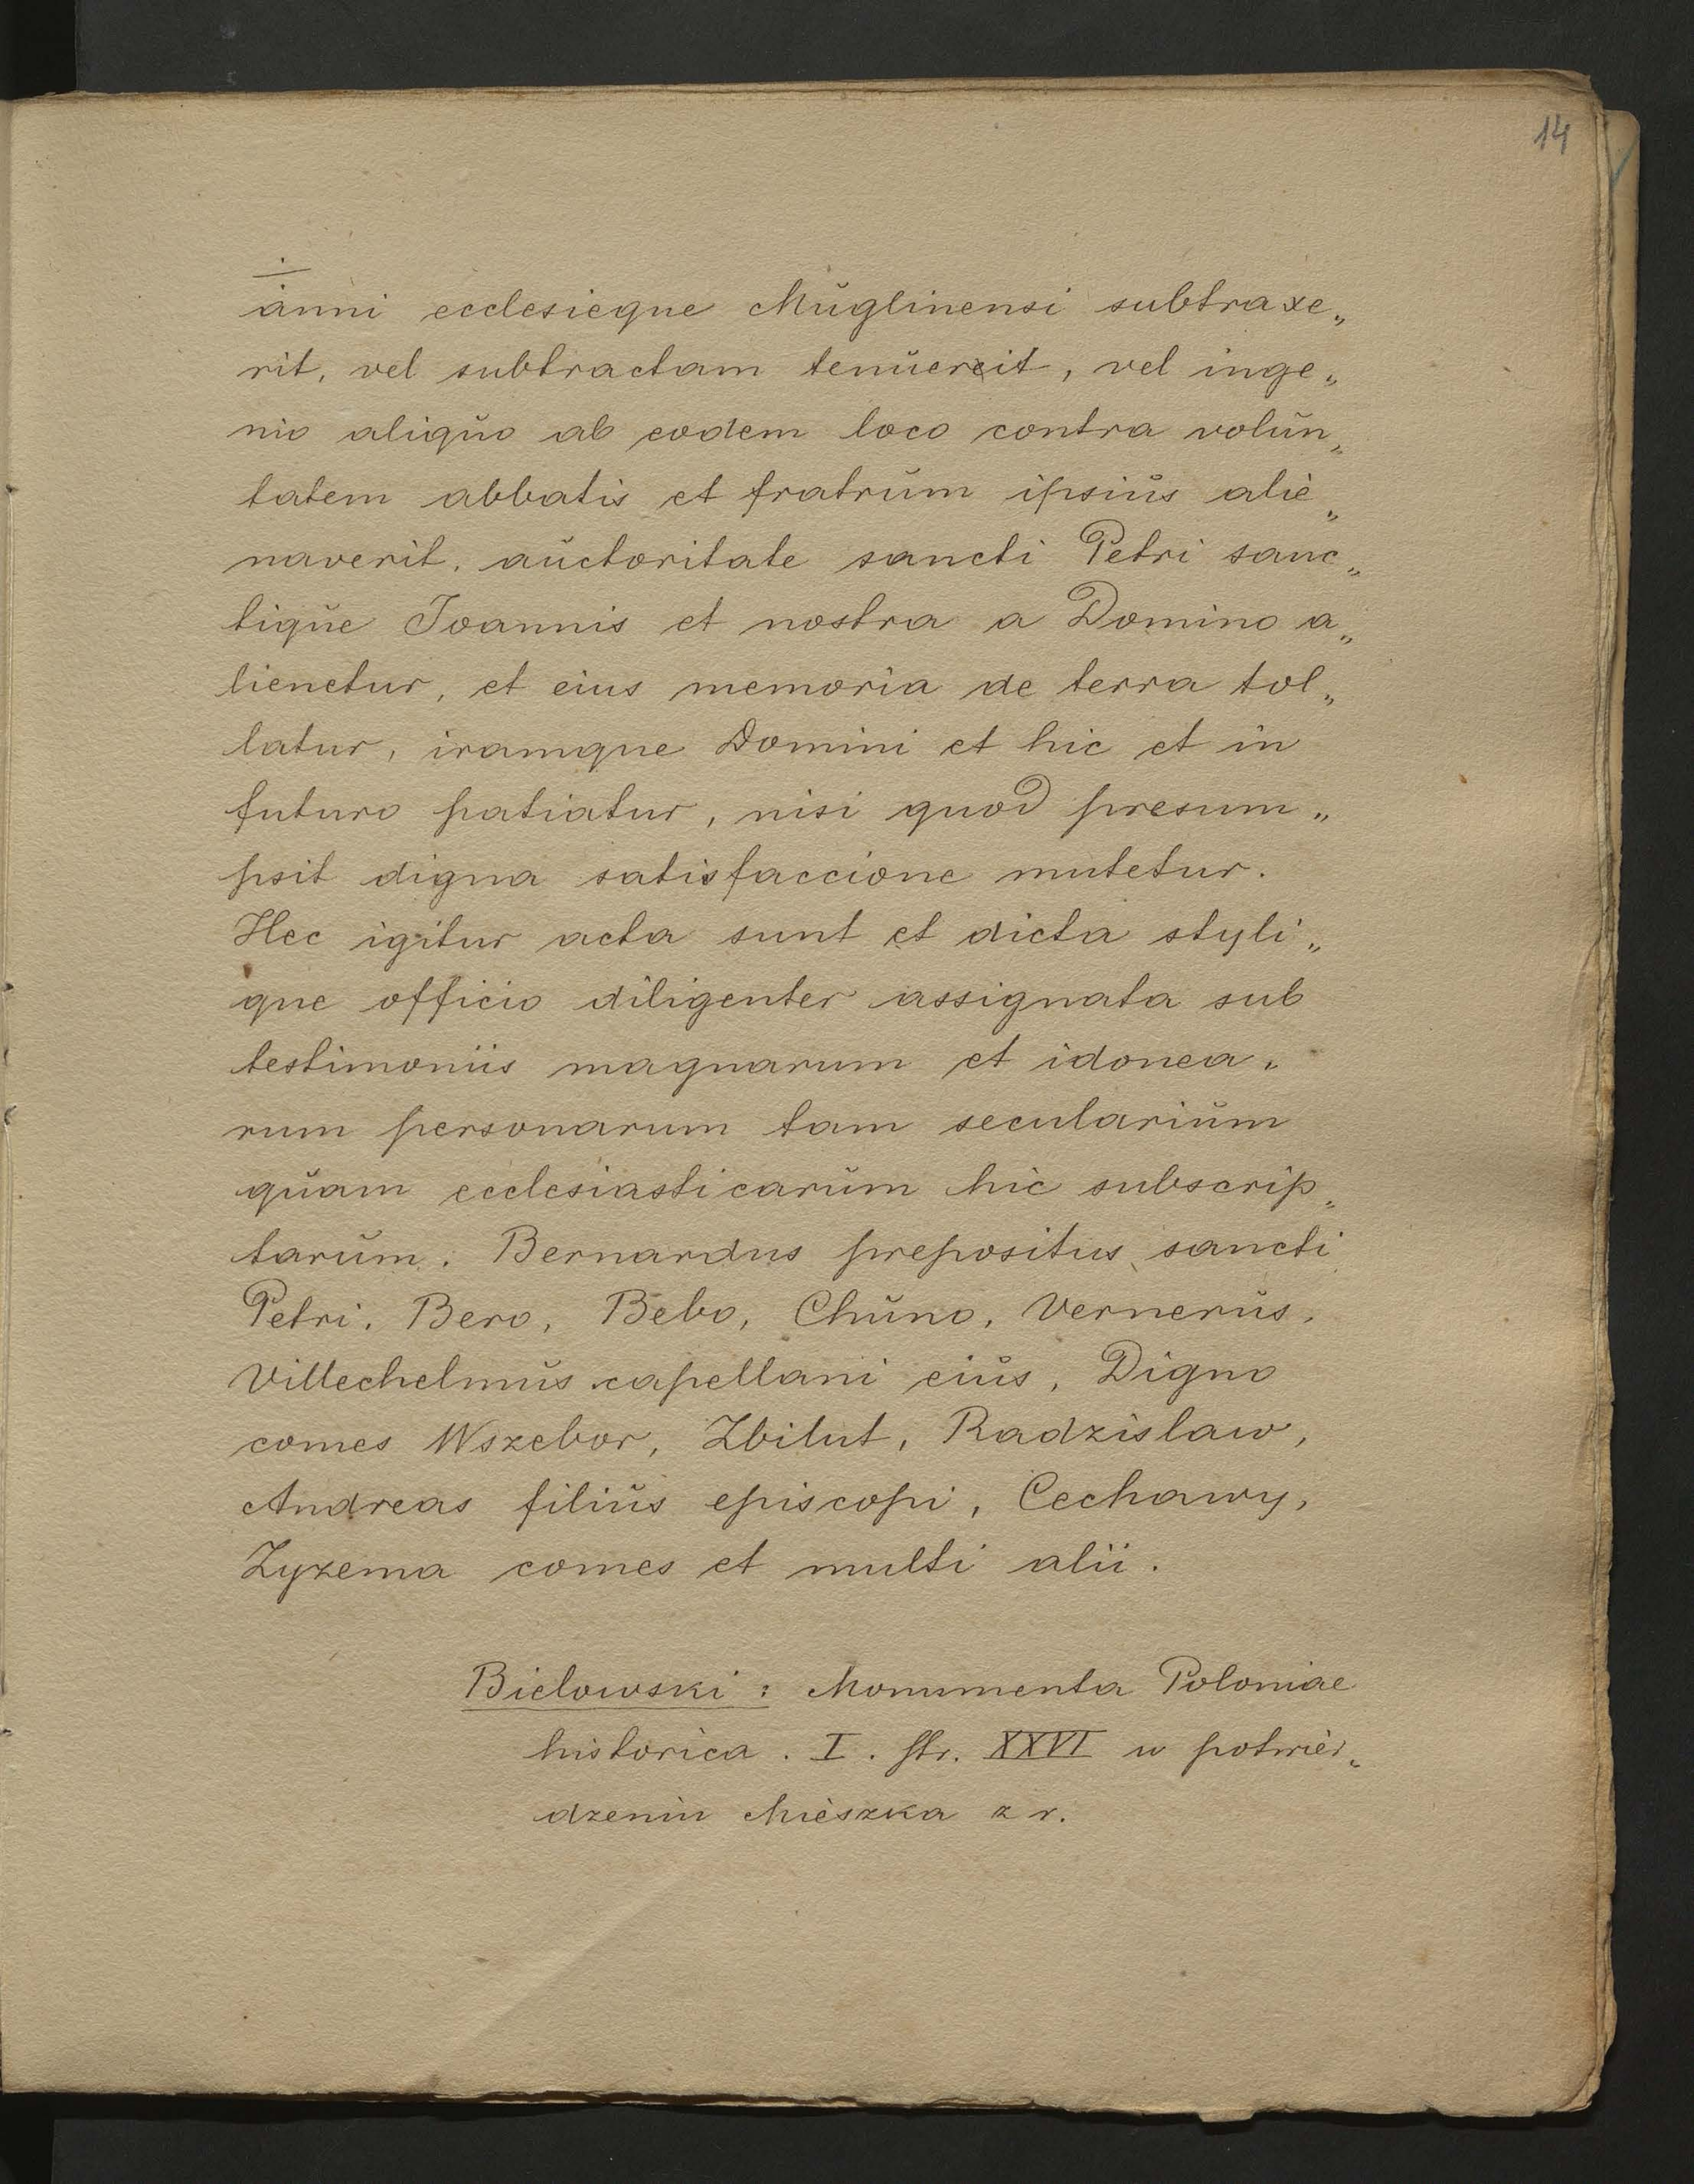 14
anni ecclesieque Mŭglinensi subtraxe„
rit, vel subtractam tenŭerit, vel inge„
nio aliqŭo ab eodem loco contra volŭn„
tatem abbatis et fratrŭm ipsiŭs alie„
naverit, aŭctoritate sancti Petri sanc„
tiqŭe Joannis et nostra a Domino a„
lienetur, et eius memoria de terra tol„
latur, iramque Domini et hic et in
futuro patiatur, nisi quod presum„
psit digna satisfaccione mutetur.
Hec igitur acta sunt et dicta styli„
que officio diligenter assignata sub
testimoniis magnarum et idonea„
rum personarum tam seculariŭm
qŭam ecclesiasticarŭm hic subscrip„
tarŭm. Bernardus prepositus sancti
Petri. Bero, Bebo, Chŭno, Vernerŭs,
Villechelmŭs capellani eiŭs, Digno
comes Wszebor, Zbilut, Radzislaw,
Andreas filiŭs episcopi, Cechawy,
Zyzema comes et multi alii.
Bielowski: Monumenta Poloniae
historica. I. str. XXVI w potwier„
dzeniu Mieszka z r.